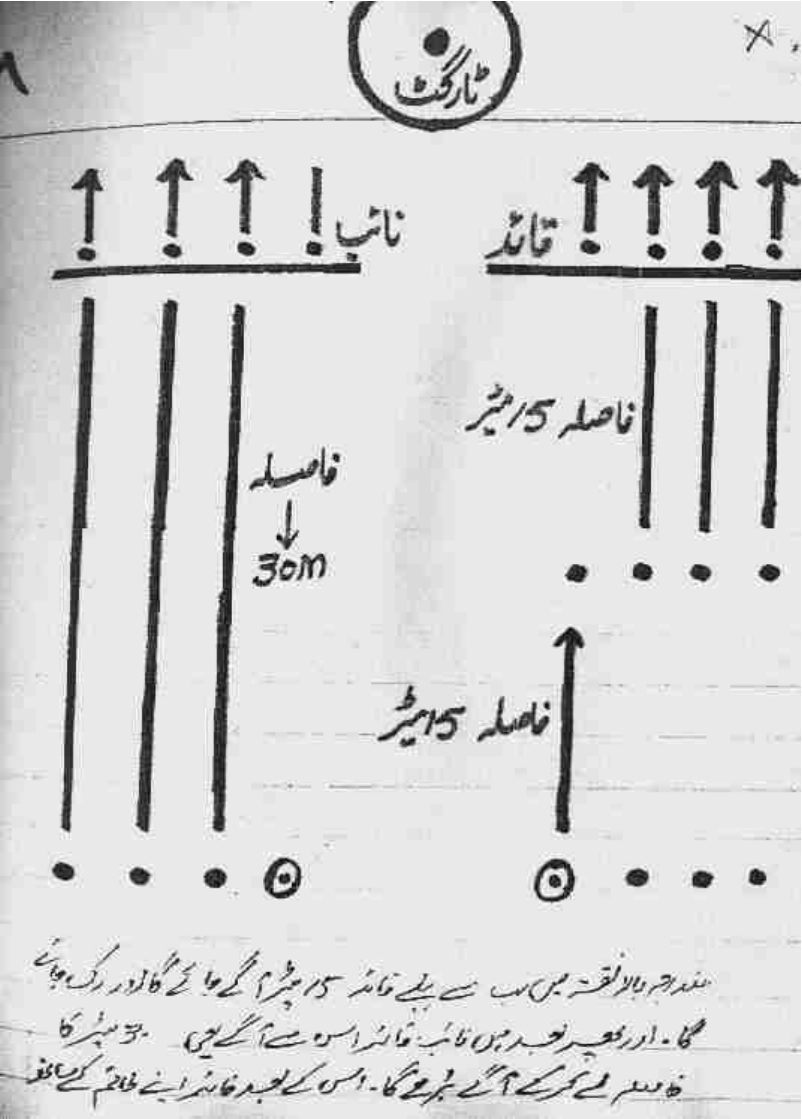 ٹارگٹ
قائد
نائب
فاصلہ 15 میٹر
فاصلہ
30m
فاصلہ 15 میٹر
مندرجہ بالا نقشہ میں سب سے پہلے قائد 15 میٹر آگے جائے گا اور رک جائے
گا۔ اور پھر بعد میں نائب قائد اس سے آگے یعنی 30 میٹر کا
فاصلہ طے کرکے آگے بڑھے گا۔ اس کے بعد قائد اپنے طاقم کے ساتھ